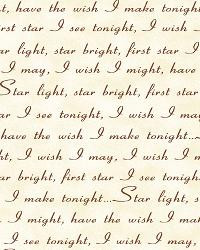 have the wish I make tonight
first star I see tonight, I wish
star light, star bright, first star I
I may, I wish I might, have
Star light, star bright, first
star I see tonight, I wish I
have the wish I make tonight...
I wish I may, I wish I
bright, first star I see tonight
I make tonight...Star light, s
I might, have the wish I
I see tonight, I wish I may,